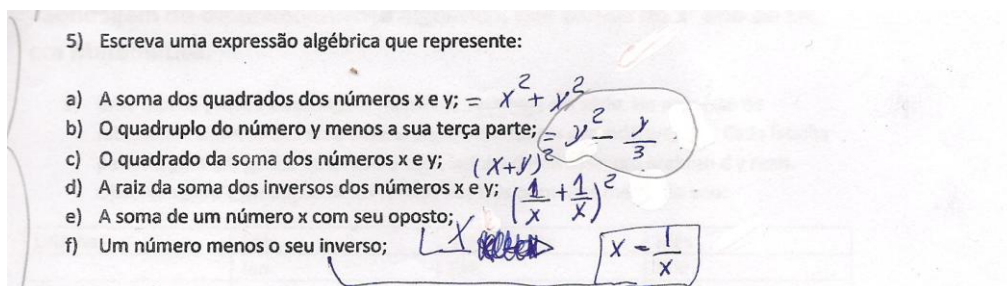 5) Escreva uma expressão algébrica que represente:
a) A soma dos quadrados dos números x e y; = x² + y²
b) O quadruplo do número y menos a sua terça parte; = y² - y/3
c) O quadrado da soma dos números x e y; (x+y)²
d) A raiz da soma dos inversos dos números x e y; (1/x + 1/x)²
e) A soma de um número x com seu oposto; x
f) Um número menos o seu inverso; x - 1/x